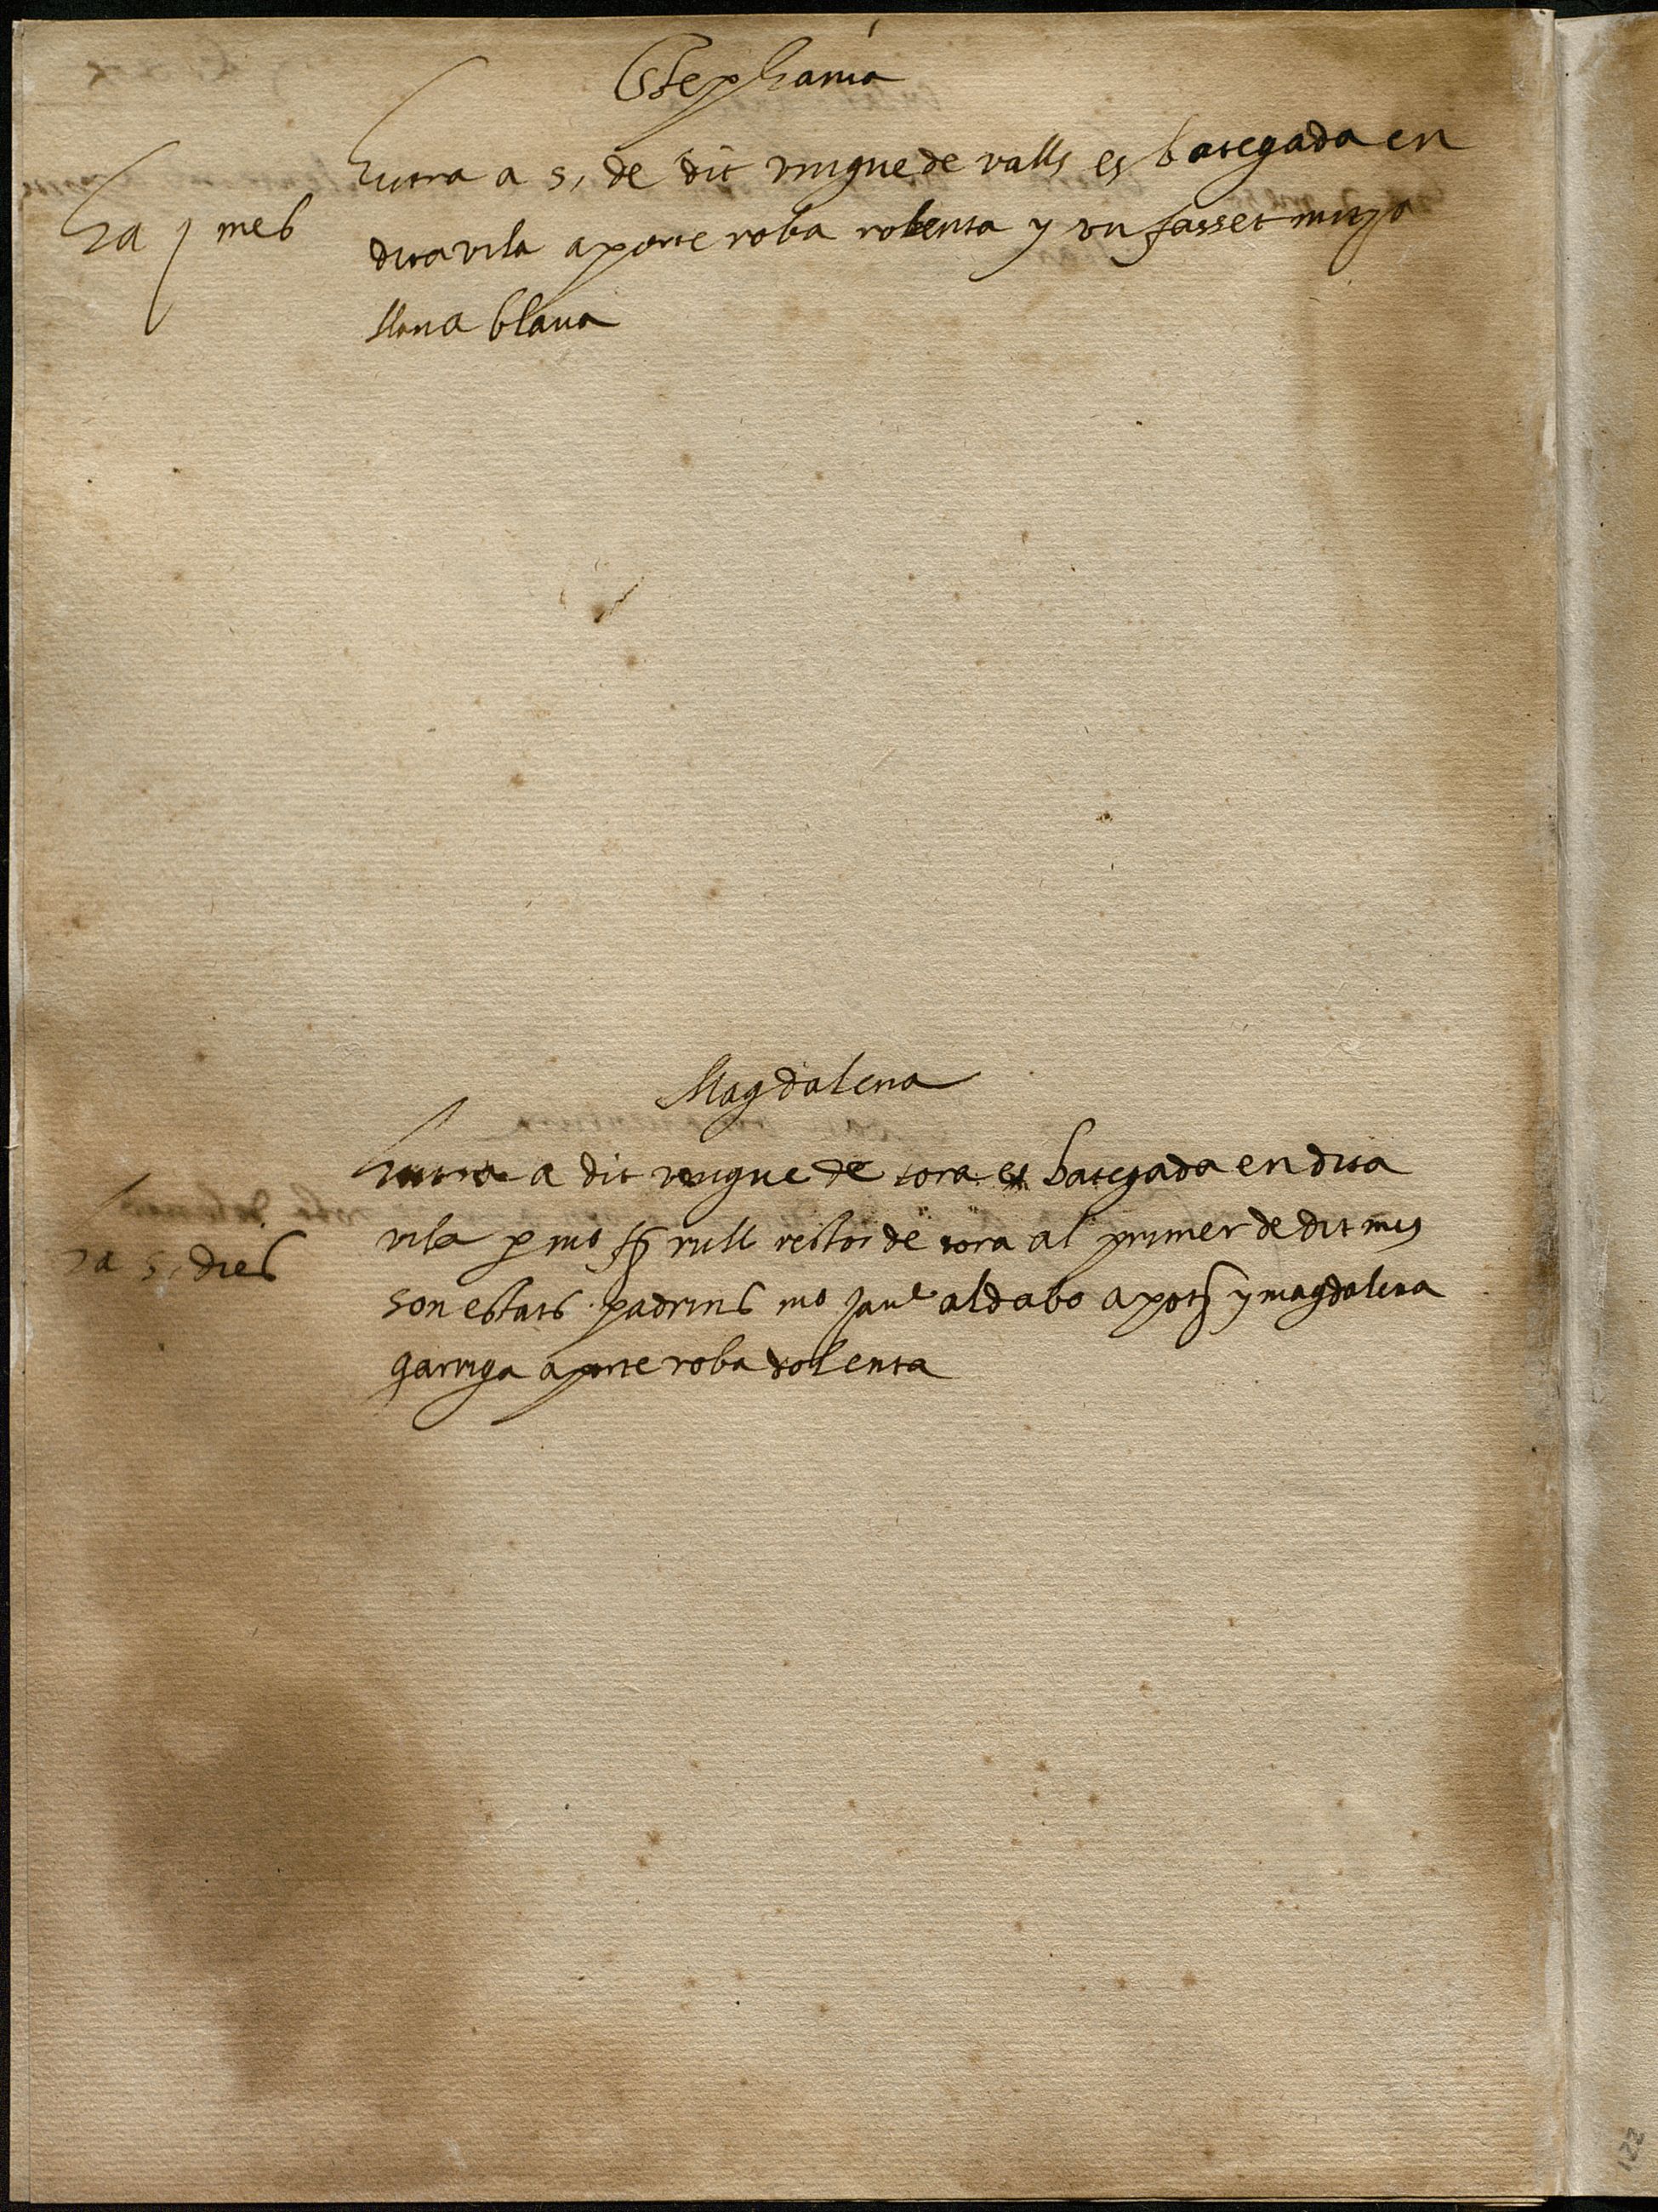 Estephania
lliura a 5, de dit vingue de valls es bategada en
ha j mes
dita vila aporte roba rolenta y un fasset mitja
llana blava
Magdalena
a dit vingue de tora es bategada en dita
vila p mo rull rector de tora al primer de dit mes
ha 5, dies
son estats padrins mo Jaul aldabo apot y magdalena
garriga aporte roba dolenta
122